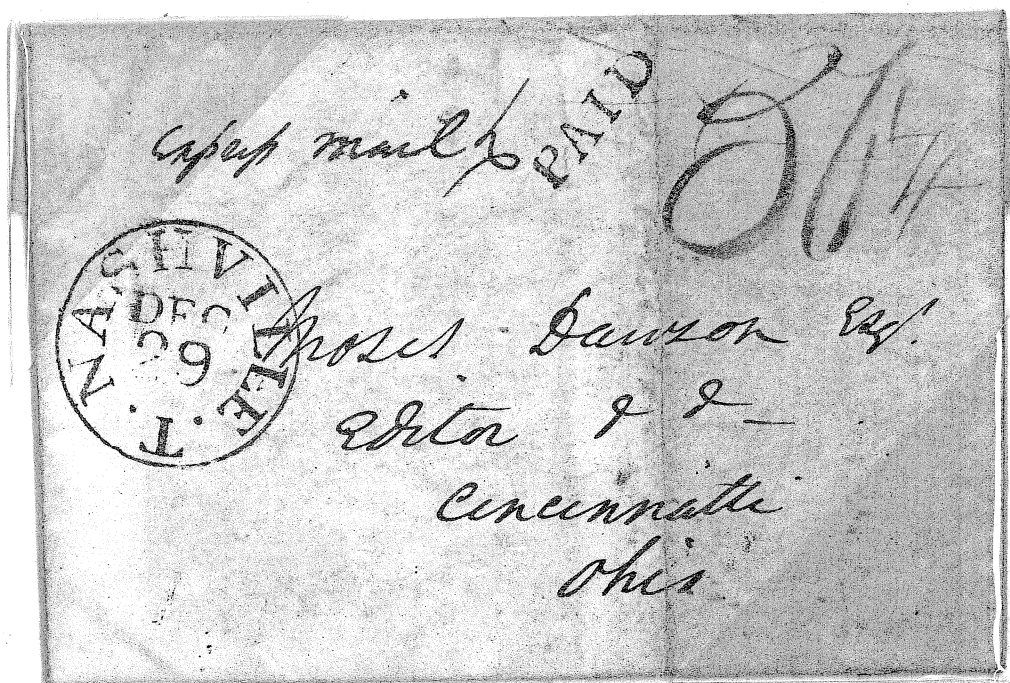 express mail
PAID
NASHVILLE. T.
DEC
29
Moses Dawson Esqr.
Editor & &
Cincinnatti
Ohio